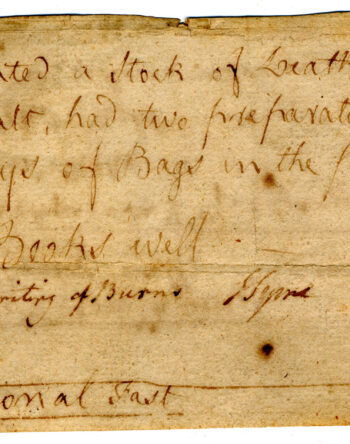 ated a Stock of Leath
had two preparat
of Bags in the
Books well
riting of Burns JSyme
onal Fast